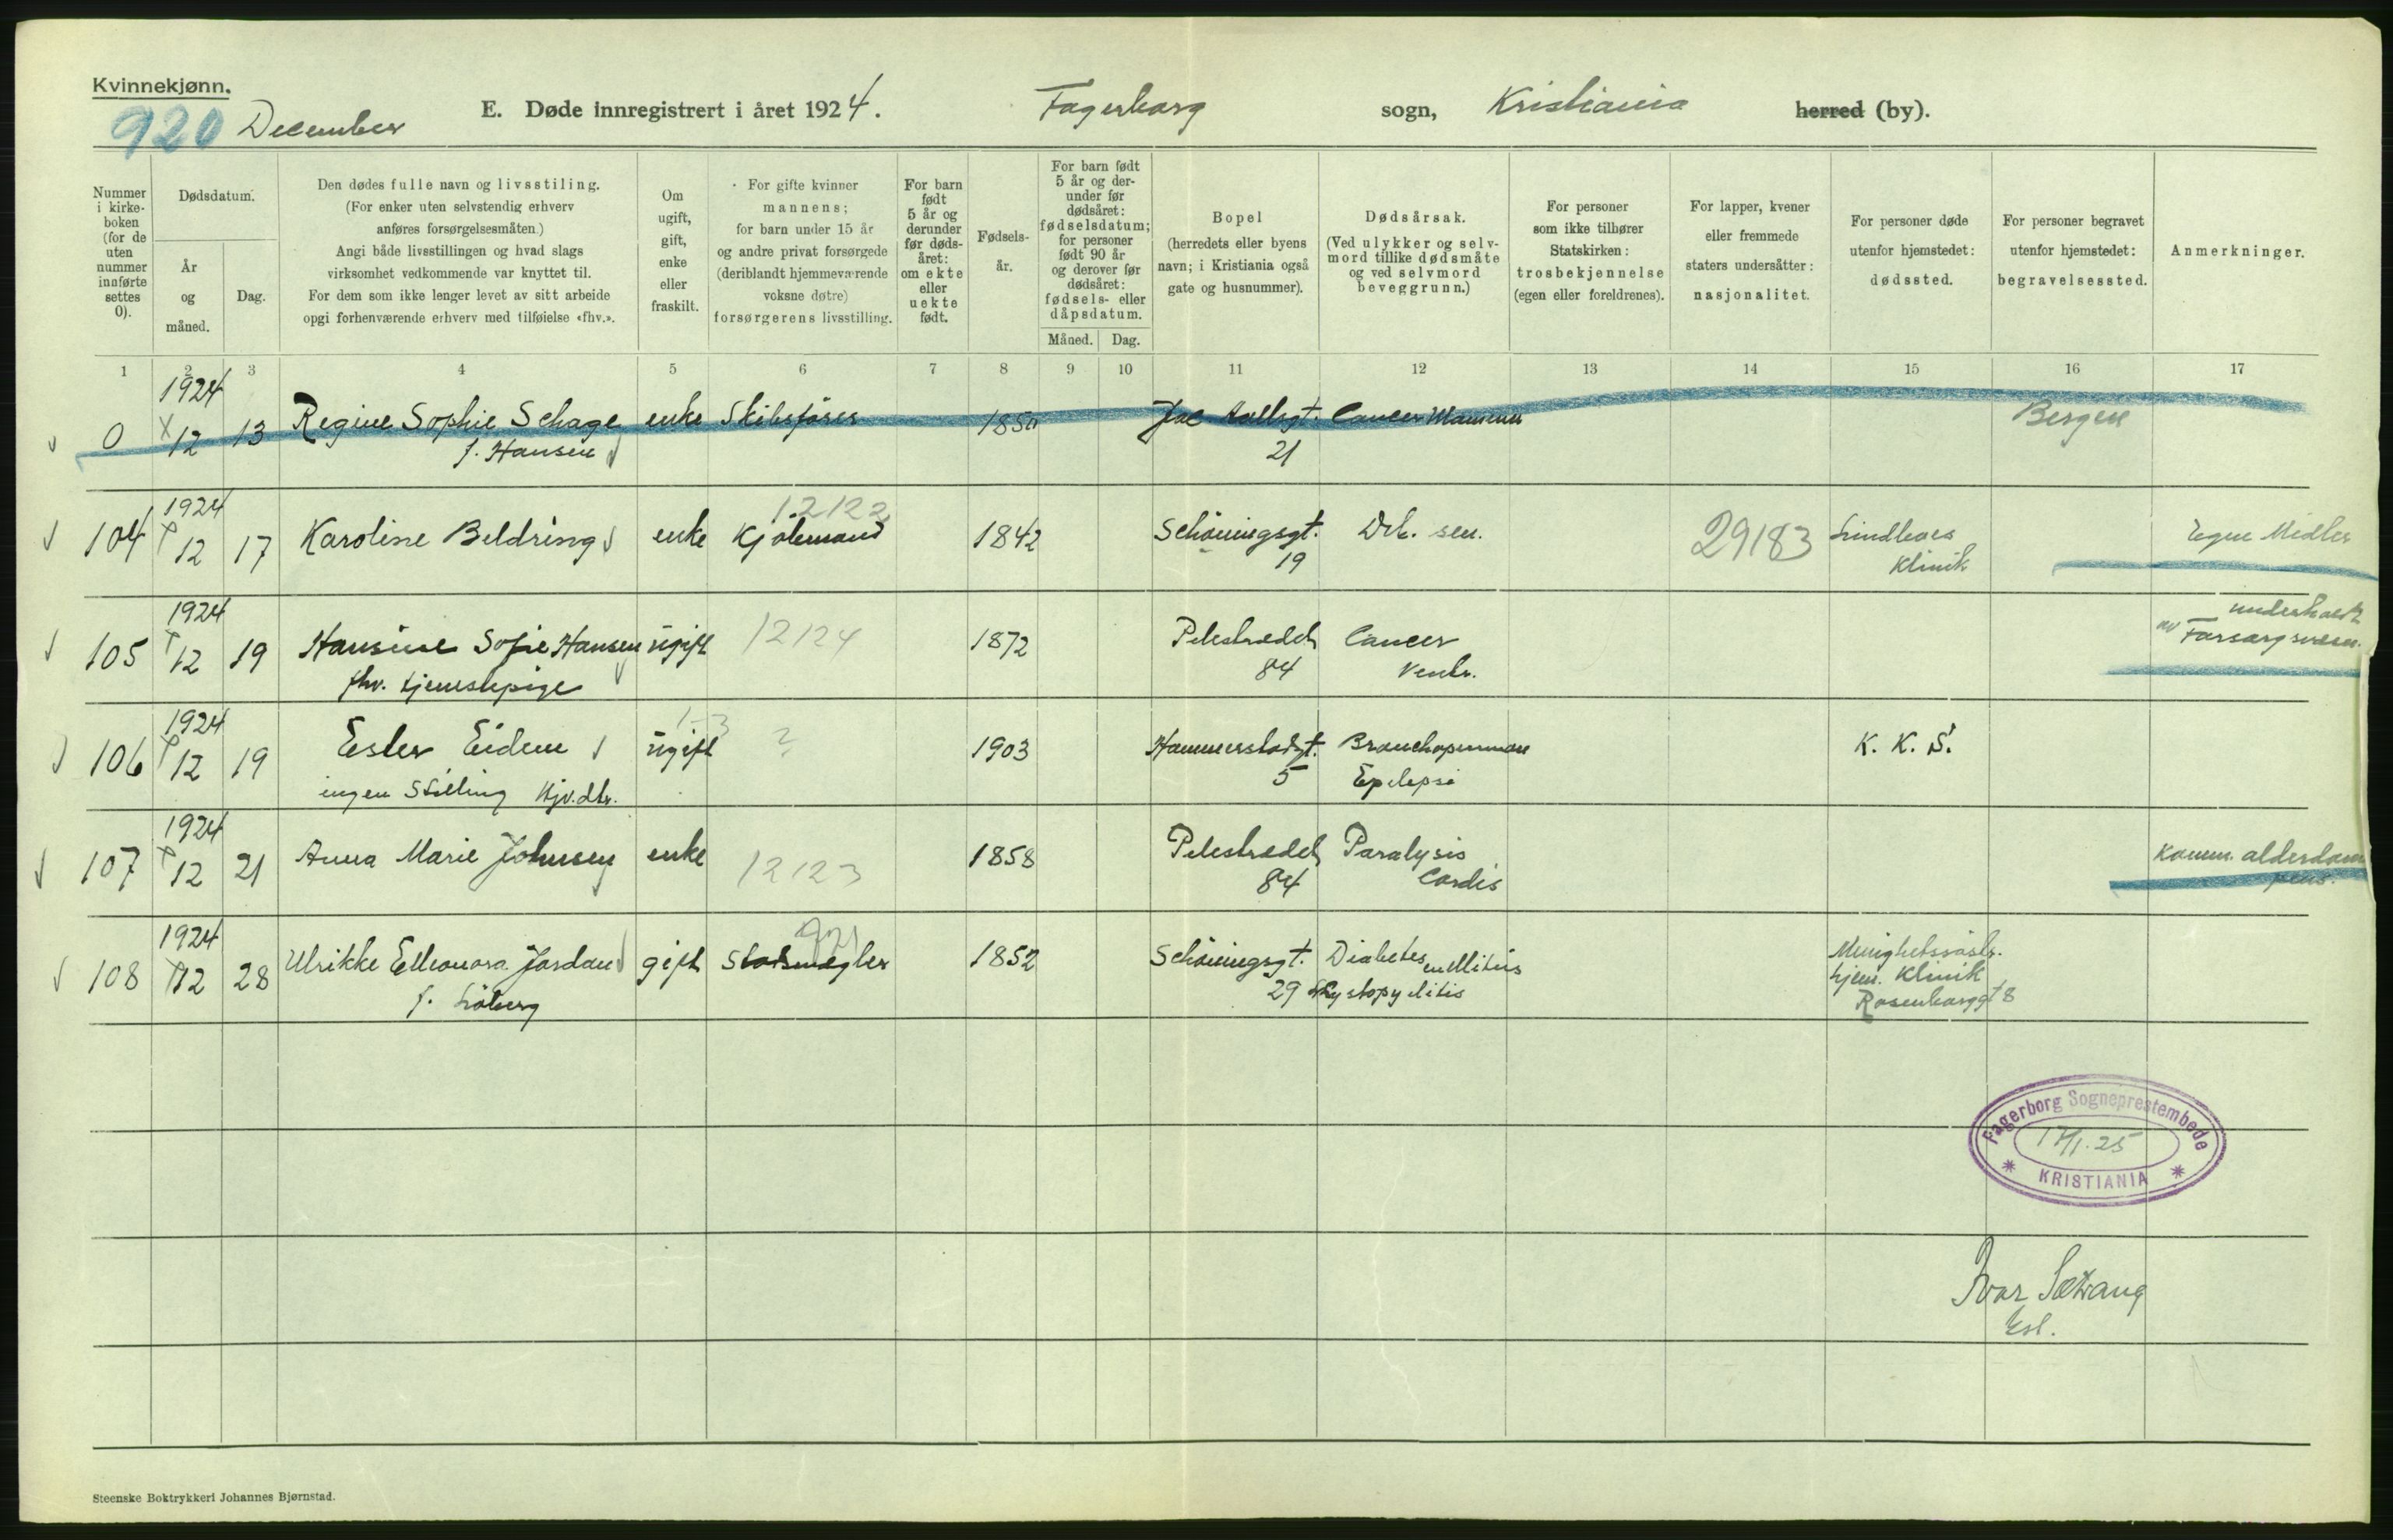 Kvinnekjønn.
920 December
E. Døde innregistrert i året 1924. Fagerborg sogn, Kristiania herred (by).
Nummer i kirke-boken (for de uten nummer innførte settes 0).
Dødsdatum.
År og måned.
Dag.
Den dødes fulle navn og livsstiling.
(For enker uten selvstendig erhverv
anføres forsørgelsesmåten.)
Angi både livsstillingen og hvad slags
virksomhet vedkommende var knyttet til.
For dem som ikke lenger levet av sitt arbeide
opgi forhenværende erhverv med tilføielse «fhv.».
Om ugift, gift, enke eller fraskilt.
For gifte kvinner
mannens;
for barn under 15 år
og andre privat forsørgede
(deriblandt hjemmeværende
voksne døtre)
forsørgerens livsstilling.
For barn født 5 år og derunder før døds-året: om ekte eller uekte født.
Fødsels-år.
For barn født
5 år og der-
under før
dødsåret:
fødselsdatum;
for personer
født 90 år
og derover før
dødsåret:
fødsels- eller
dåpsdatum.
Måned. Dag.
Bopel
(herredets eller byens
navn; i Kristiania også
gate og husnummer).
Dødsårsak.
(Ved ulykker og selv-
mord tillike dødsmåte
og ved selvmord
beveggrunn.)
For personer
som ikke tilhører
Statskirken:
trosbekjennelse
(egen eller foreldrenes).
For lapper, kvener
eller fremmede
staters undersåtter:
nasjonalitet.
For personer døde
utenfor hjemstedet:
dødssted.
For personer begravet
utenfor hjemstedet:
begravelsessted.
Anmerkninger.
1 2 3 4 5 6 7 8 9 10 11 12 13 14 15 16 17
1924
0 12 13 Regine Sophie Schage enke Skibsfører 1850 Jac Aallsgt. Cancer Mammæ Bergen
f. Hansen 21
1924 12122
104 12 17 Karoline Beldring enke Kjølemand 1842 Schøningsgt. Deb. sen. 29183 Lindboes Egne Midler
19 Klinik
1924 underholdt
105 12 19 Hansine Sofie Hansen ugift 12124 1872 Pilestrædet Cancer av Forsorgsvæsn.
fhv. tjenestepige 84 Ventr.
1924
106 12 19 Ester Eidem ugift ? 1903 Hammerstadsgt. Bronchopneumoni K. K. S.
ingen Stilling Hjv. dtr. 5 Epilepsi
1924
107 12 21 Anna Marie Johnsen enke 12123 1858 Pilestrædet Paralysis Komm. alderdoms
84 Cordis pens.
1924 921
108 12 28 Ulrikke Elleonora Jordan gift Statsmegler 1852 Schøningsgt. Diabetes mellitus Menighetssøstr.
f. Løberg 29 Cystopyelitis hjem. Klinik
Rosenborggt 8
Fagerborg Sogneprestembede
17/1.25
KRISTIANIA
Ivar Sætrang
Steenske Boktrykkeri Johannes Bjørnstad.